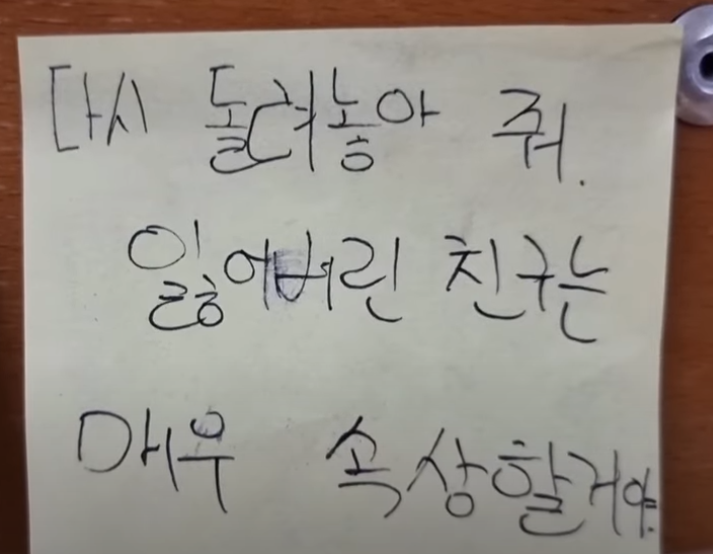 다시 돌려놓아 줘.
잃어버린 친구는
매우 속상할거야.